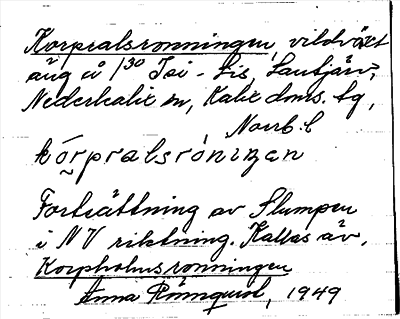 Korpralsrönningen, vildväxt
äng å 1/30 Isi - Lis, Lantjärv,
Nederkalix sn, Kalix doms. tg,
Norrb. l.
kórpralsròningen
Fortsättning av Slumpen
i NV riktning. Kallas äv.
Korpholmsrönningen
Anna Rönnqvist, 1949